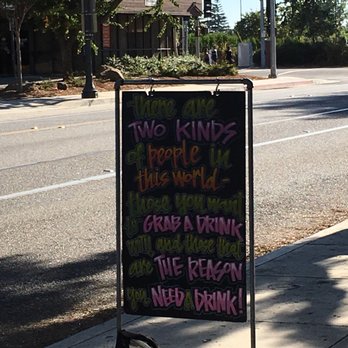 there are
TWO KINDS
of people in
this world -
those you want
to GRAB A DRINK
with and those that
are THE REASON
you NEED A DRINK!